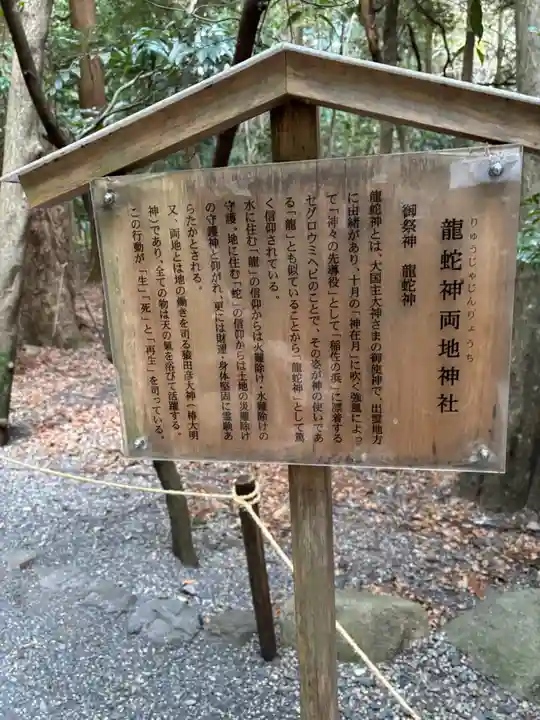 りゅうじゃじんりょうち
龍蛇神両地神社
御祭神　龍蛇神
龍蛇神とは、大国主大神さまの御使神で、出雲地方
に由緒があり、十月の「神在月」に吹く強風によっ
て「神々の先導役」として「稲佐の浜」に漂着する
セグロウミヘビのことで、その姿が神の使いであ
る「龍」とも似ていることから「龍蛇神」として篤
く信仰されている。
水に住む「龍」の信仰からは火難除け・水難除けの
守護、地に住む「蛇」の信仰からは土地の災難除け
の守護神と仰がれ、更には財運・身体堅固に霊験あ
らたかとされる。
又、両地とは地の働きを司る猿田彦大神（椿大明
神）であり、全ての物は天の氣を浴びて活躍する。
この行動が「生」「死」と「再生」を司っている。